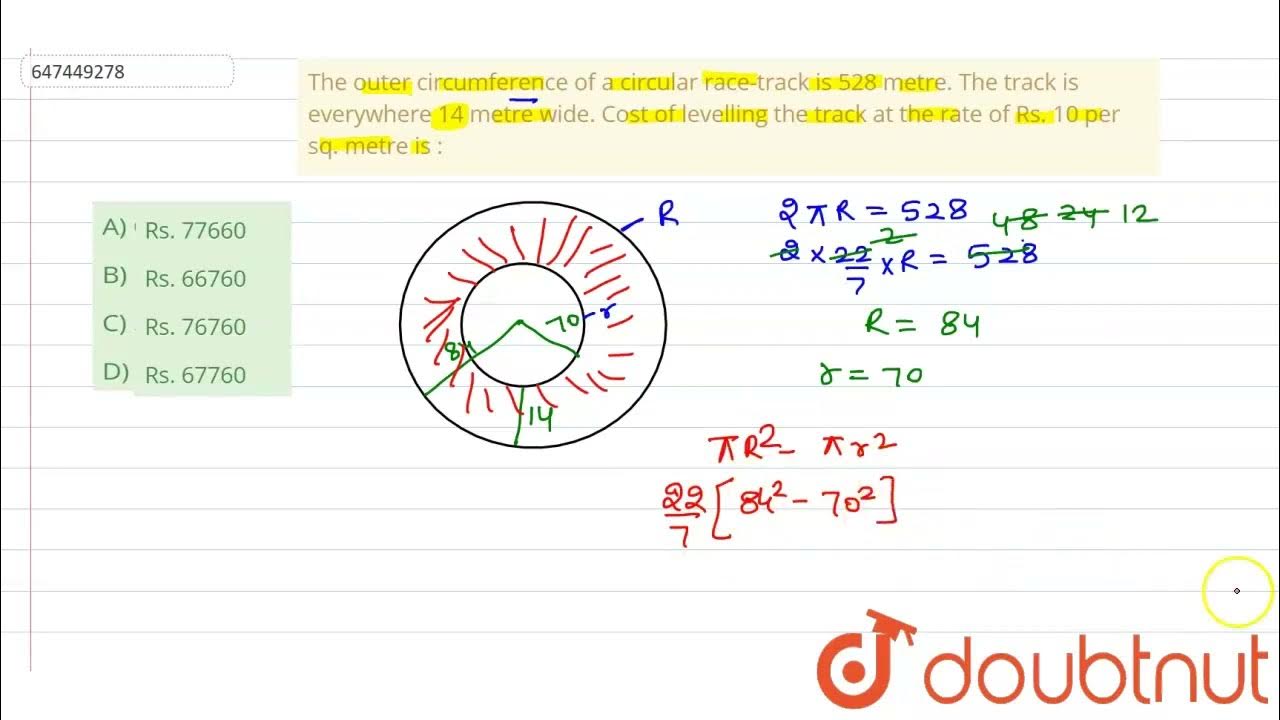 647449278
The outer circumference of a circular race-track is 528 metre. The track is
everywhere 14 metre wide. Cost of levelling the track at the rate of Rs. 10 per
sq. metre is :
A) Rs. 77660
B) Rs. 66760
C) Rs. 76760
D) Rs. 67760
R
r
70
84
14
2πR = 528 48 24 12
2 × 22/7 × R = 528
2
R = 84
r = 70
πR² - πr²
22/7 [84² - 70²]
doubtnut